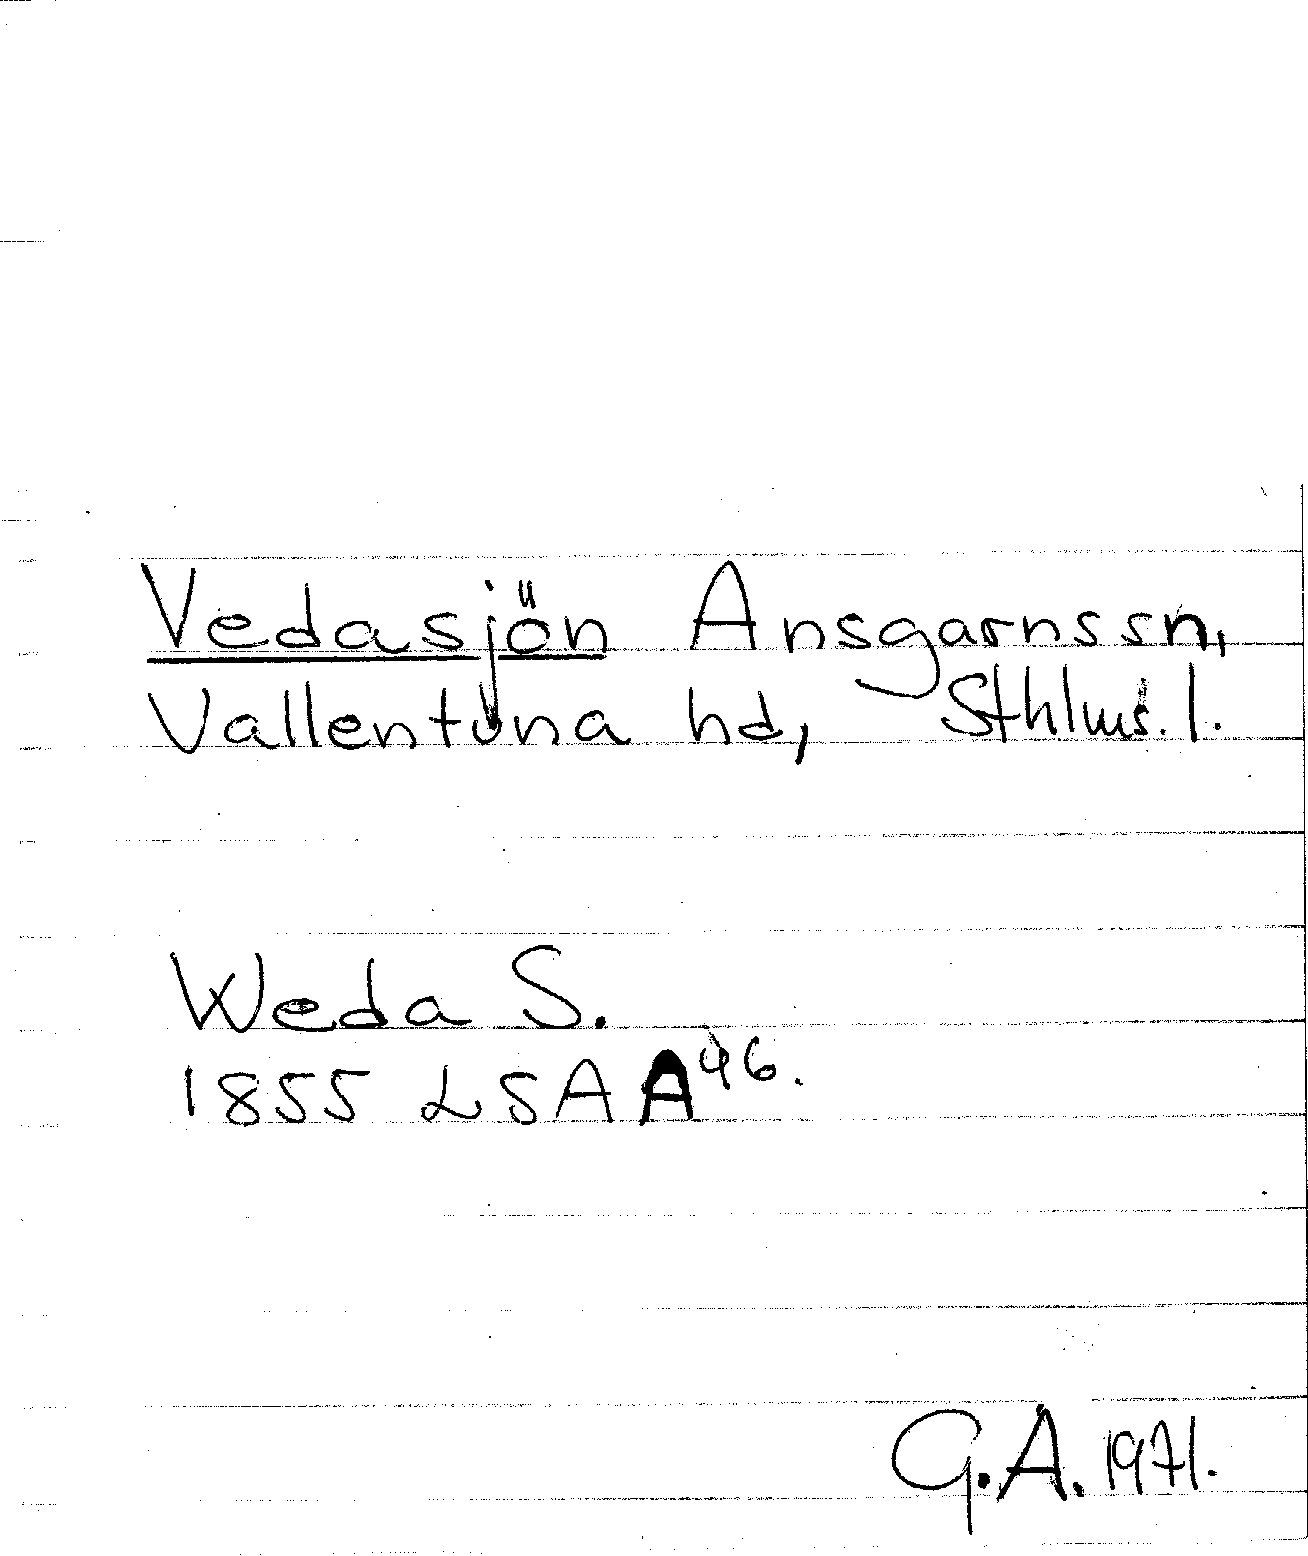 Vedasjön Ansgarnssn,
Vallentuna hd, Sthlms. l.
Weda S.
1855 LSA A46.
G.A. 1971.